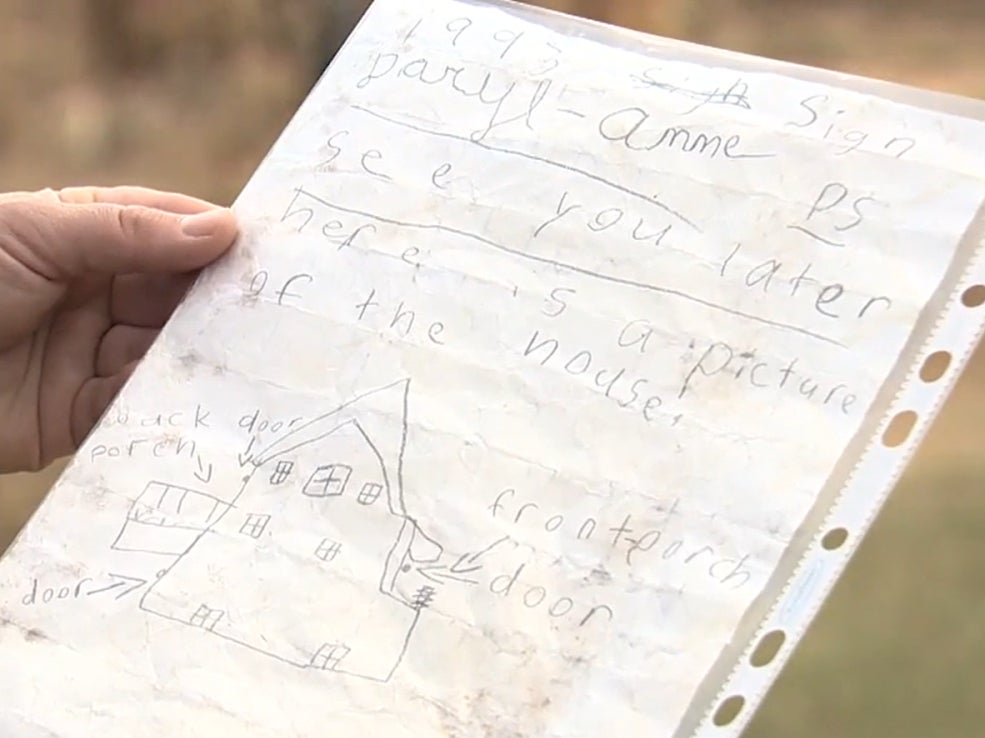 1993 Sign
Daryl-anne
PS
see you later
here is a picture
of the house.
back door
porch
front porch
door
door